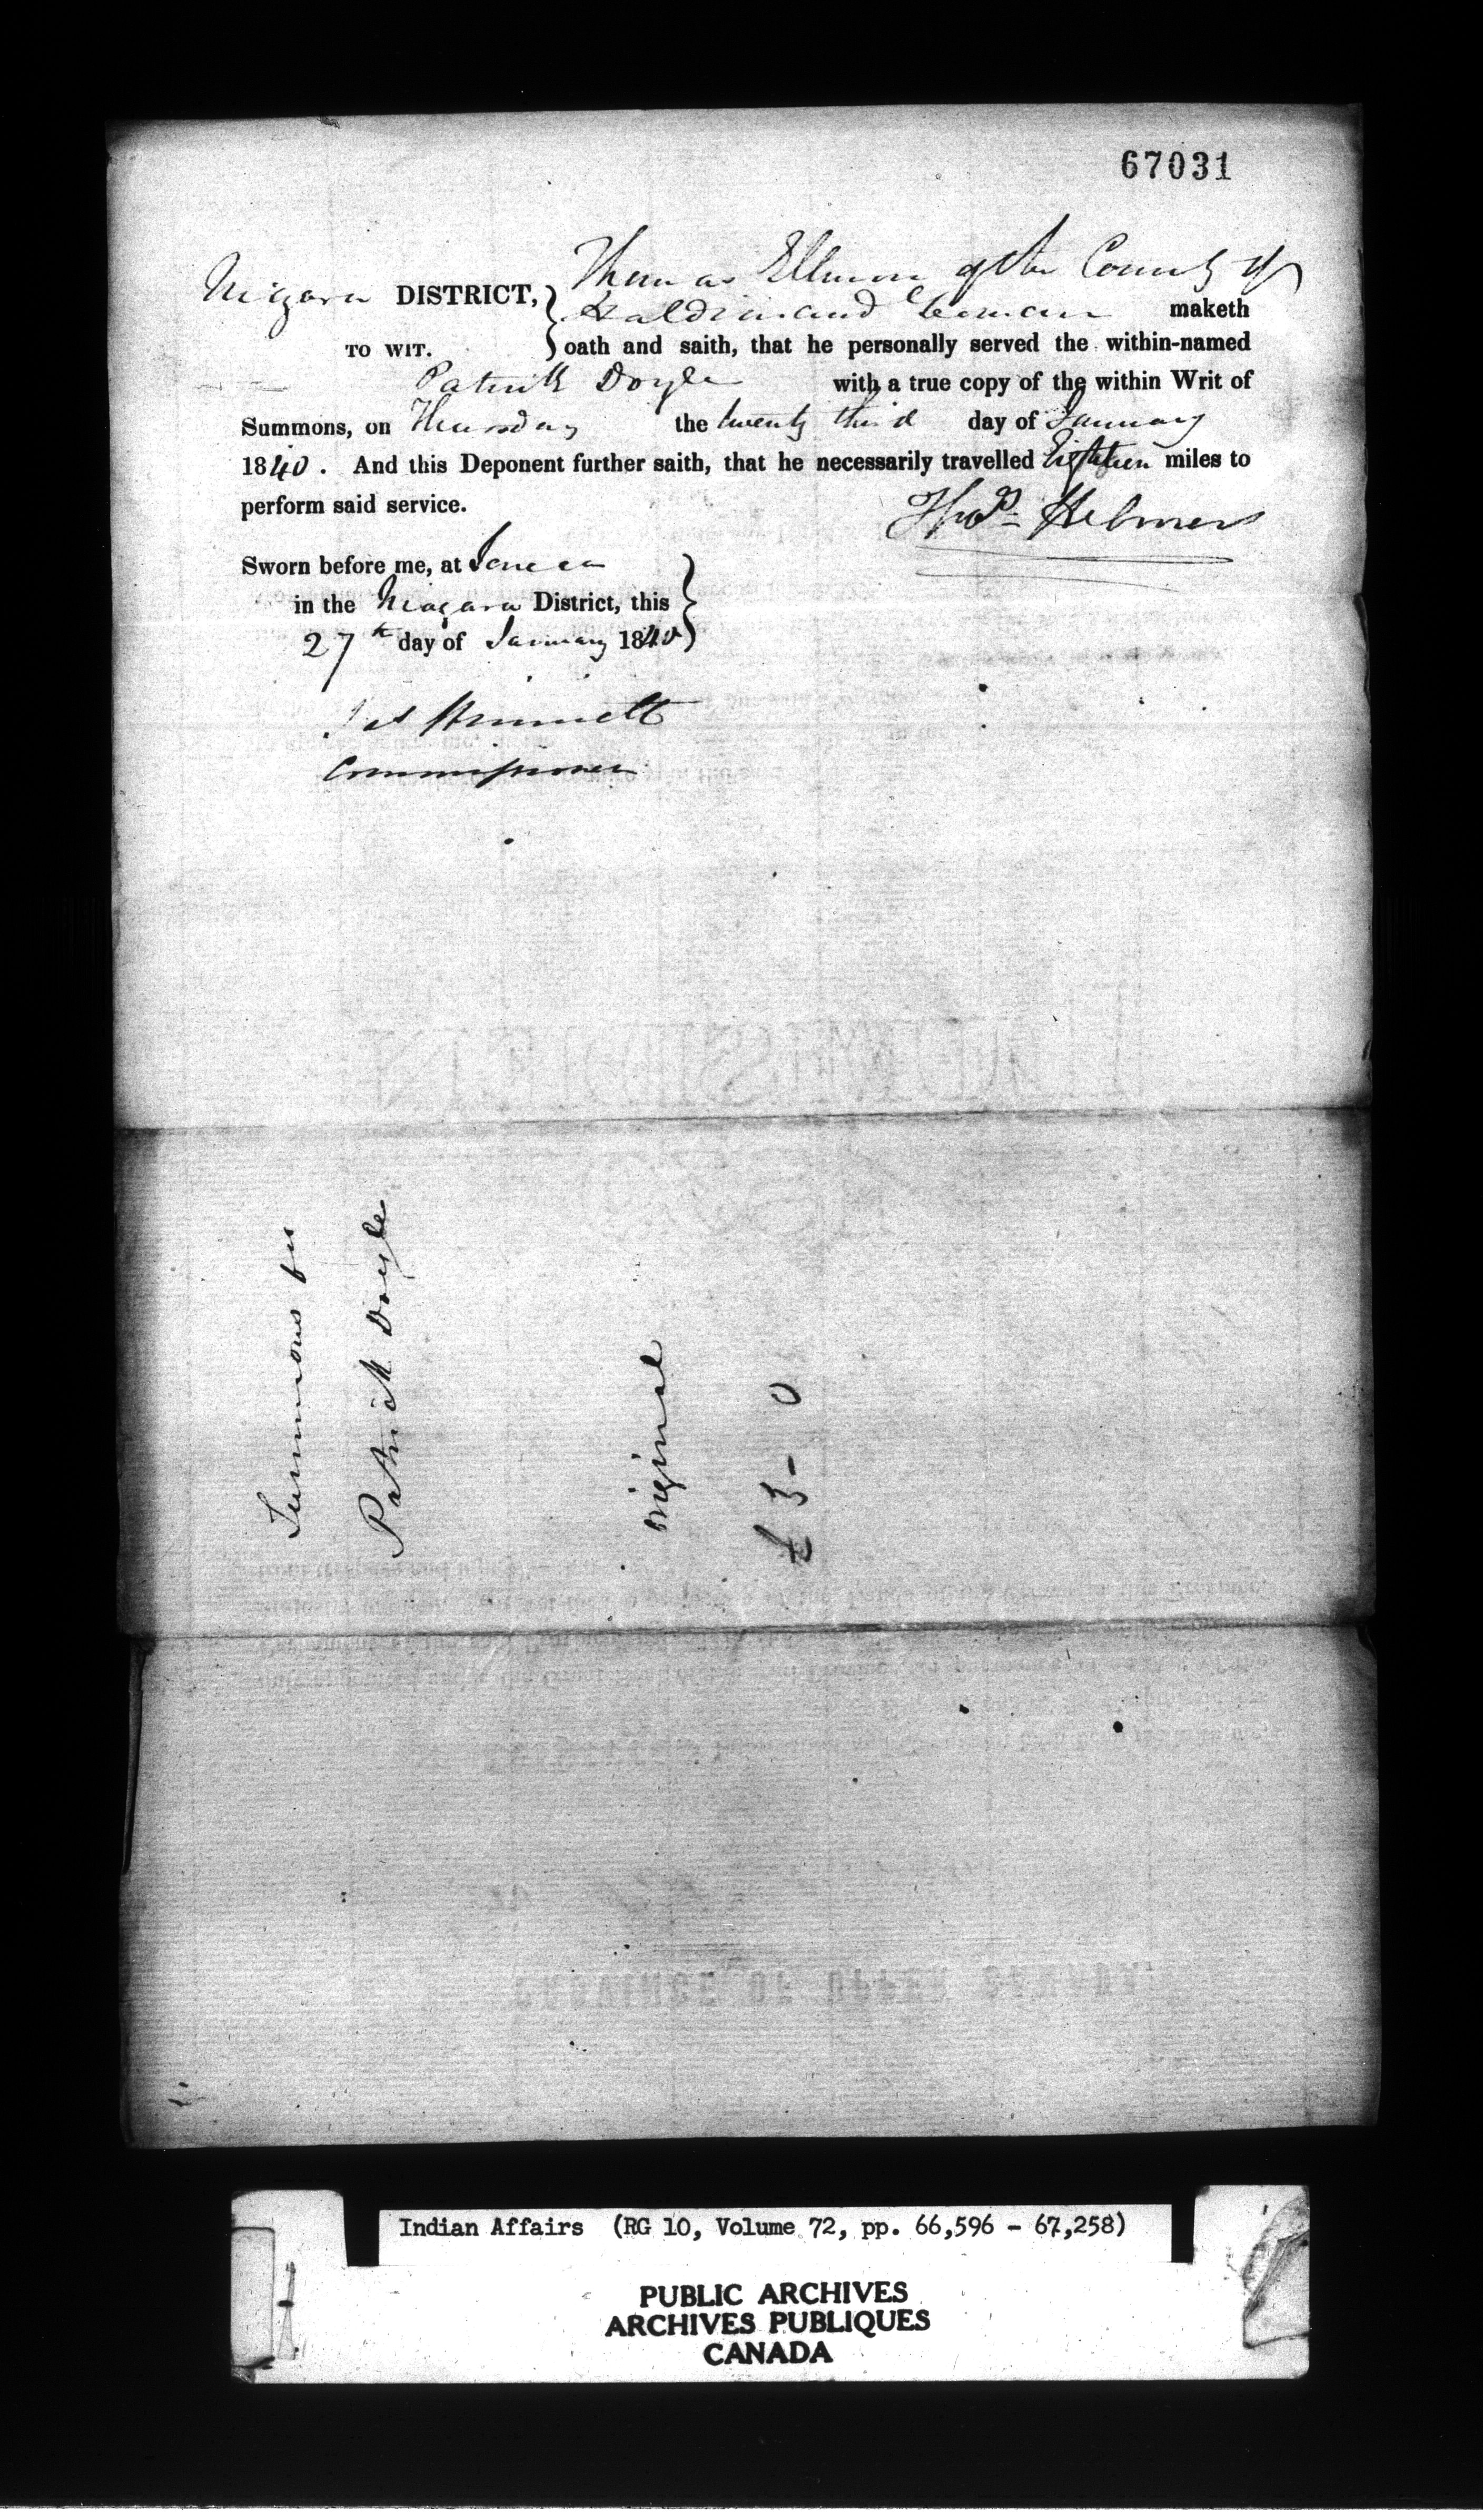 67031
Niagara DISTRICT,
Thomas Ellmore of the County of
Haldimand Yeoman maketh
TO WIT. oath and saith, that he personally served the within-named
Patrick Doyle with a true copy of the within Writ of
Summons, on Thursday the twenty third day of January
1840. And this Deponent further saith, that he necessarily travelled Eighteen miles to
perform said service.
Thos Helmer
Sworn before me, at Seneca
in the Niagara District, this
27th day of January 1840
Commissioner
Summons for
Patrick Doyle
original
£3-0
Indian Affairs (RG 10, Volume 72, pp. 66,596 - 67,258)
PUBLIC ARCHIVES
ARCHIVES PUBLIQUES
CANADA